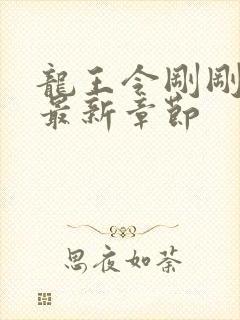 龍王令剛剛
最新章節
思夜如荼